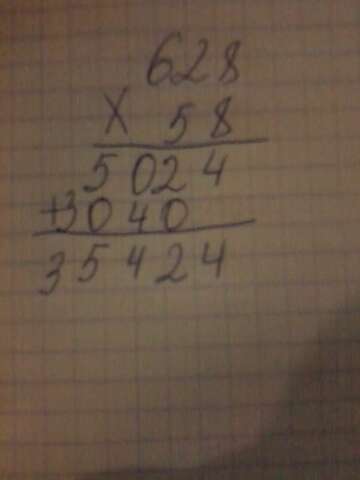 628
X 58
5024
+3040
35424